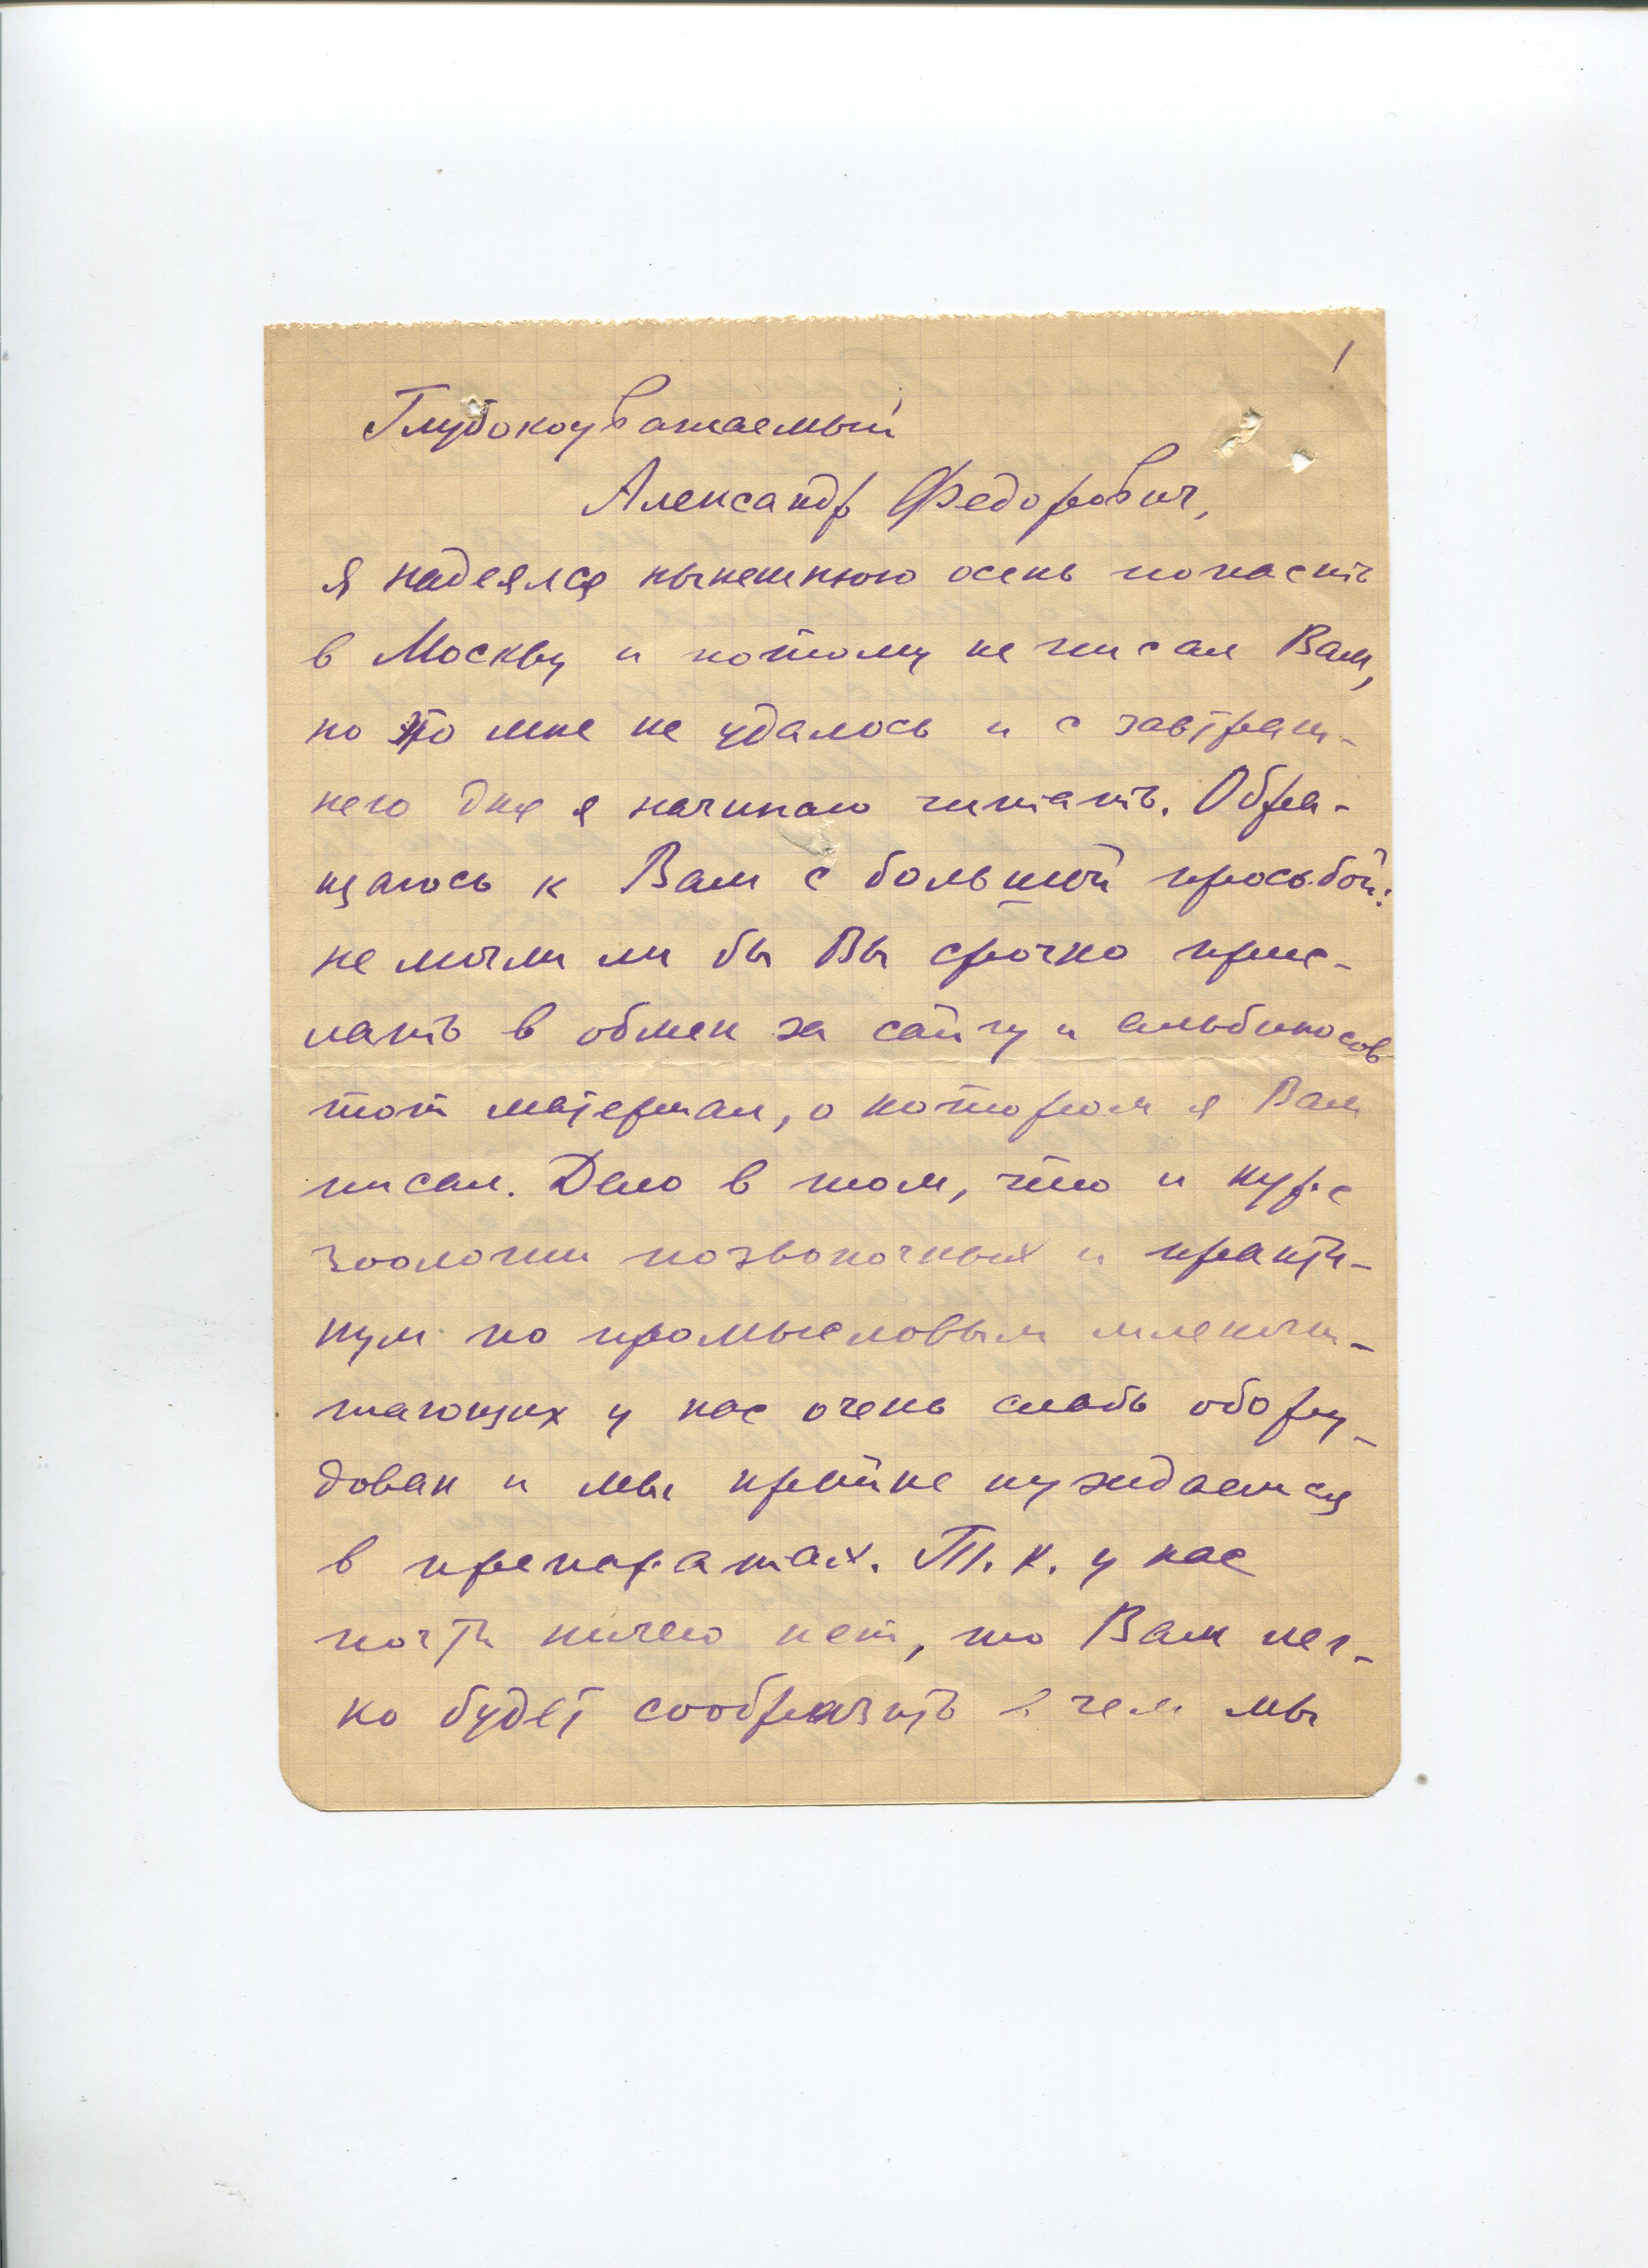 1
Глубокоуважаемый
Александр Федорович,
я надеялся нынешнюю осень попасть
в Москву и потому не писал Вам,
но это мне не удалось и с завтраш-
него дня я начинаю читать. Обра-
щаюсь к Вам с большой просьбой:
не могли ли бы Вы срочно прис-
лать в обмен за сайгу и альбиносов
тот материал, о котором я Вам
писал. Дело в том, что и курс
зоологии позвоночных и практи-
кум по промысловым млекопи-
тающих у нас очень слабо обору-
дован и мы крайне нуждаемся
в препаратах. Т. к. у нас
почти ничего нет, то Вам лег-
ко будет сообразить в чем мы